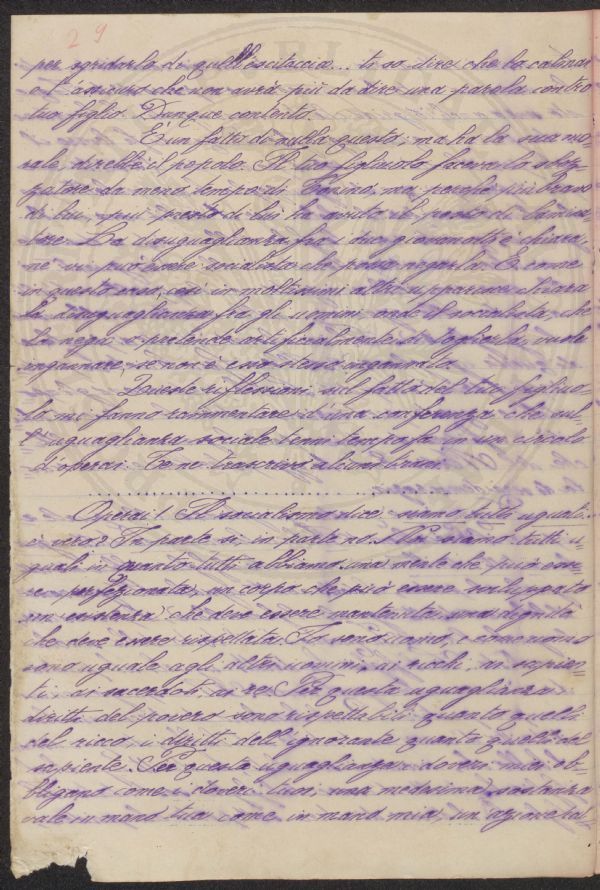 29
per sgridarlo di quell'occhiataccia... ti so dire che ha calmar
e t'assicuro che non avrà più da dire una parola contro
tuo figlio. Dunque contento.
È un fatto da nulla questo; ma ha la sua mo-
rale, direbbe il popolo. Il tuo figliuolo faceva lo
da meno tempo di Tonino, ma, perché più bravo
di lui, più presto di lui ha avuto il posto di
La disuguaglianza fra i due giovanotti è chiara,
né vi può essere socialista che possa negarla. E come
in questo caso, così in moltissimi altri apparisce chiara
la disuguaglianza fra gli uomini onde il socialista, che
la nega e pretende artificialmente di toglierla, vuole
ingannare, se non è esso stesso ingannato.
Queste riflessioni sul fatto del tuo figliuo-
lo mi fanno rammentare d'una conferenza che sul
l'uguaglianza sociale tenni tempo fa in un circolo
d'operai. Te ne trascrivo alcuni brani.
Operai! Il socialismo dice: siamo tutti uguali.
è vero? In parte sì, in parte no. Noi siamo tutti u-
guali in quanto tutti abbiamo una mente che può esse-
re perfezionata, un corpo che può essere sviluppato
un'esistenza che deve essere mantenuta, una dignità
che deve essere rispettata. Io sono uomo, e come uomo
sono uguale agli altri uomini, ai ricchi, ai sapien-
ti, ai sacerdoti, ai re. Per questa uguaglianza i
diritti del povero sono rispettabili quanto quelli
del ricco, i diritti dell'ignorante quanto quelli del
sapiente. Per questa uguaglianza i doveri miei ob-
bligano come i doveri tuoi, una medesima sostanza
vale in mano tua come in mano mia, un'azione